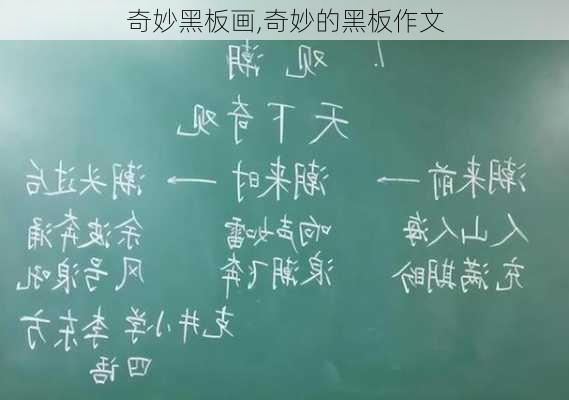 奇妙黑板画,奇妙的黑板作文
1. 观潮
天下奇观
潮来前 → 潮来时 → 潮头过后
人山人海 响声如雷 余波奔涌
充满期盼 浪潮飞奔 风号浪吼
克井小学 李东方
四语